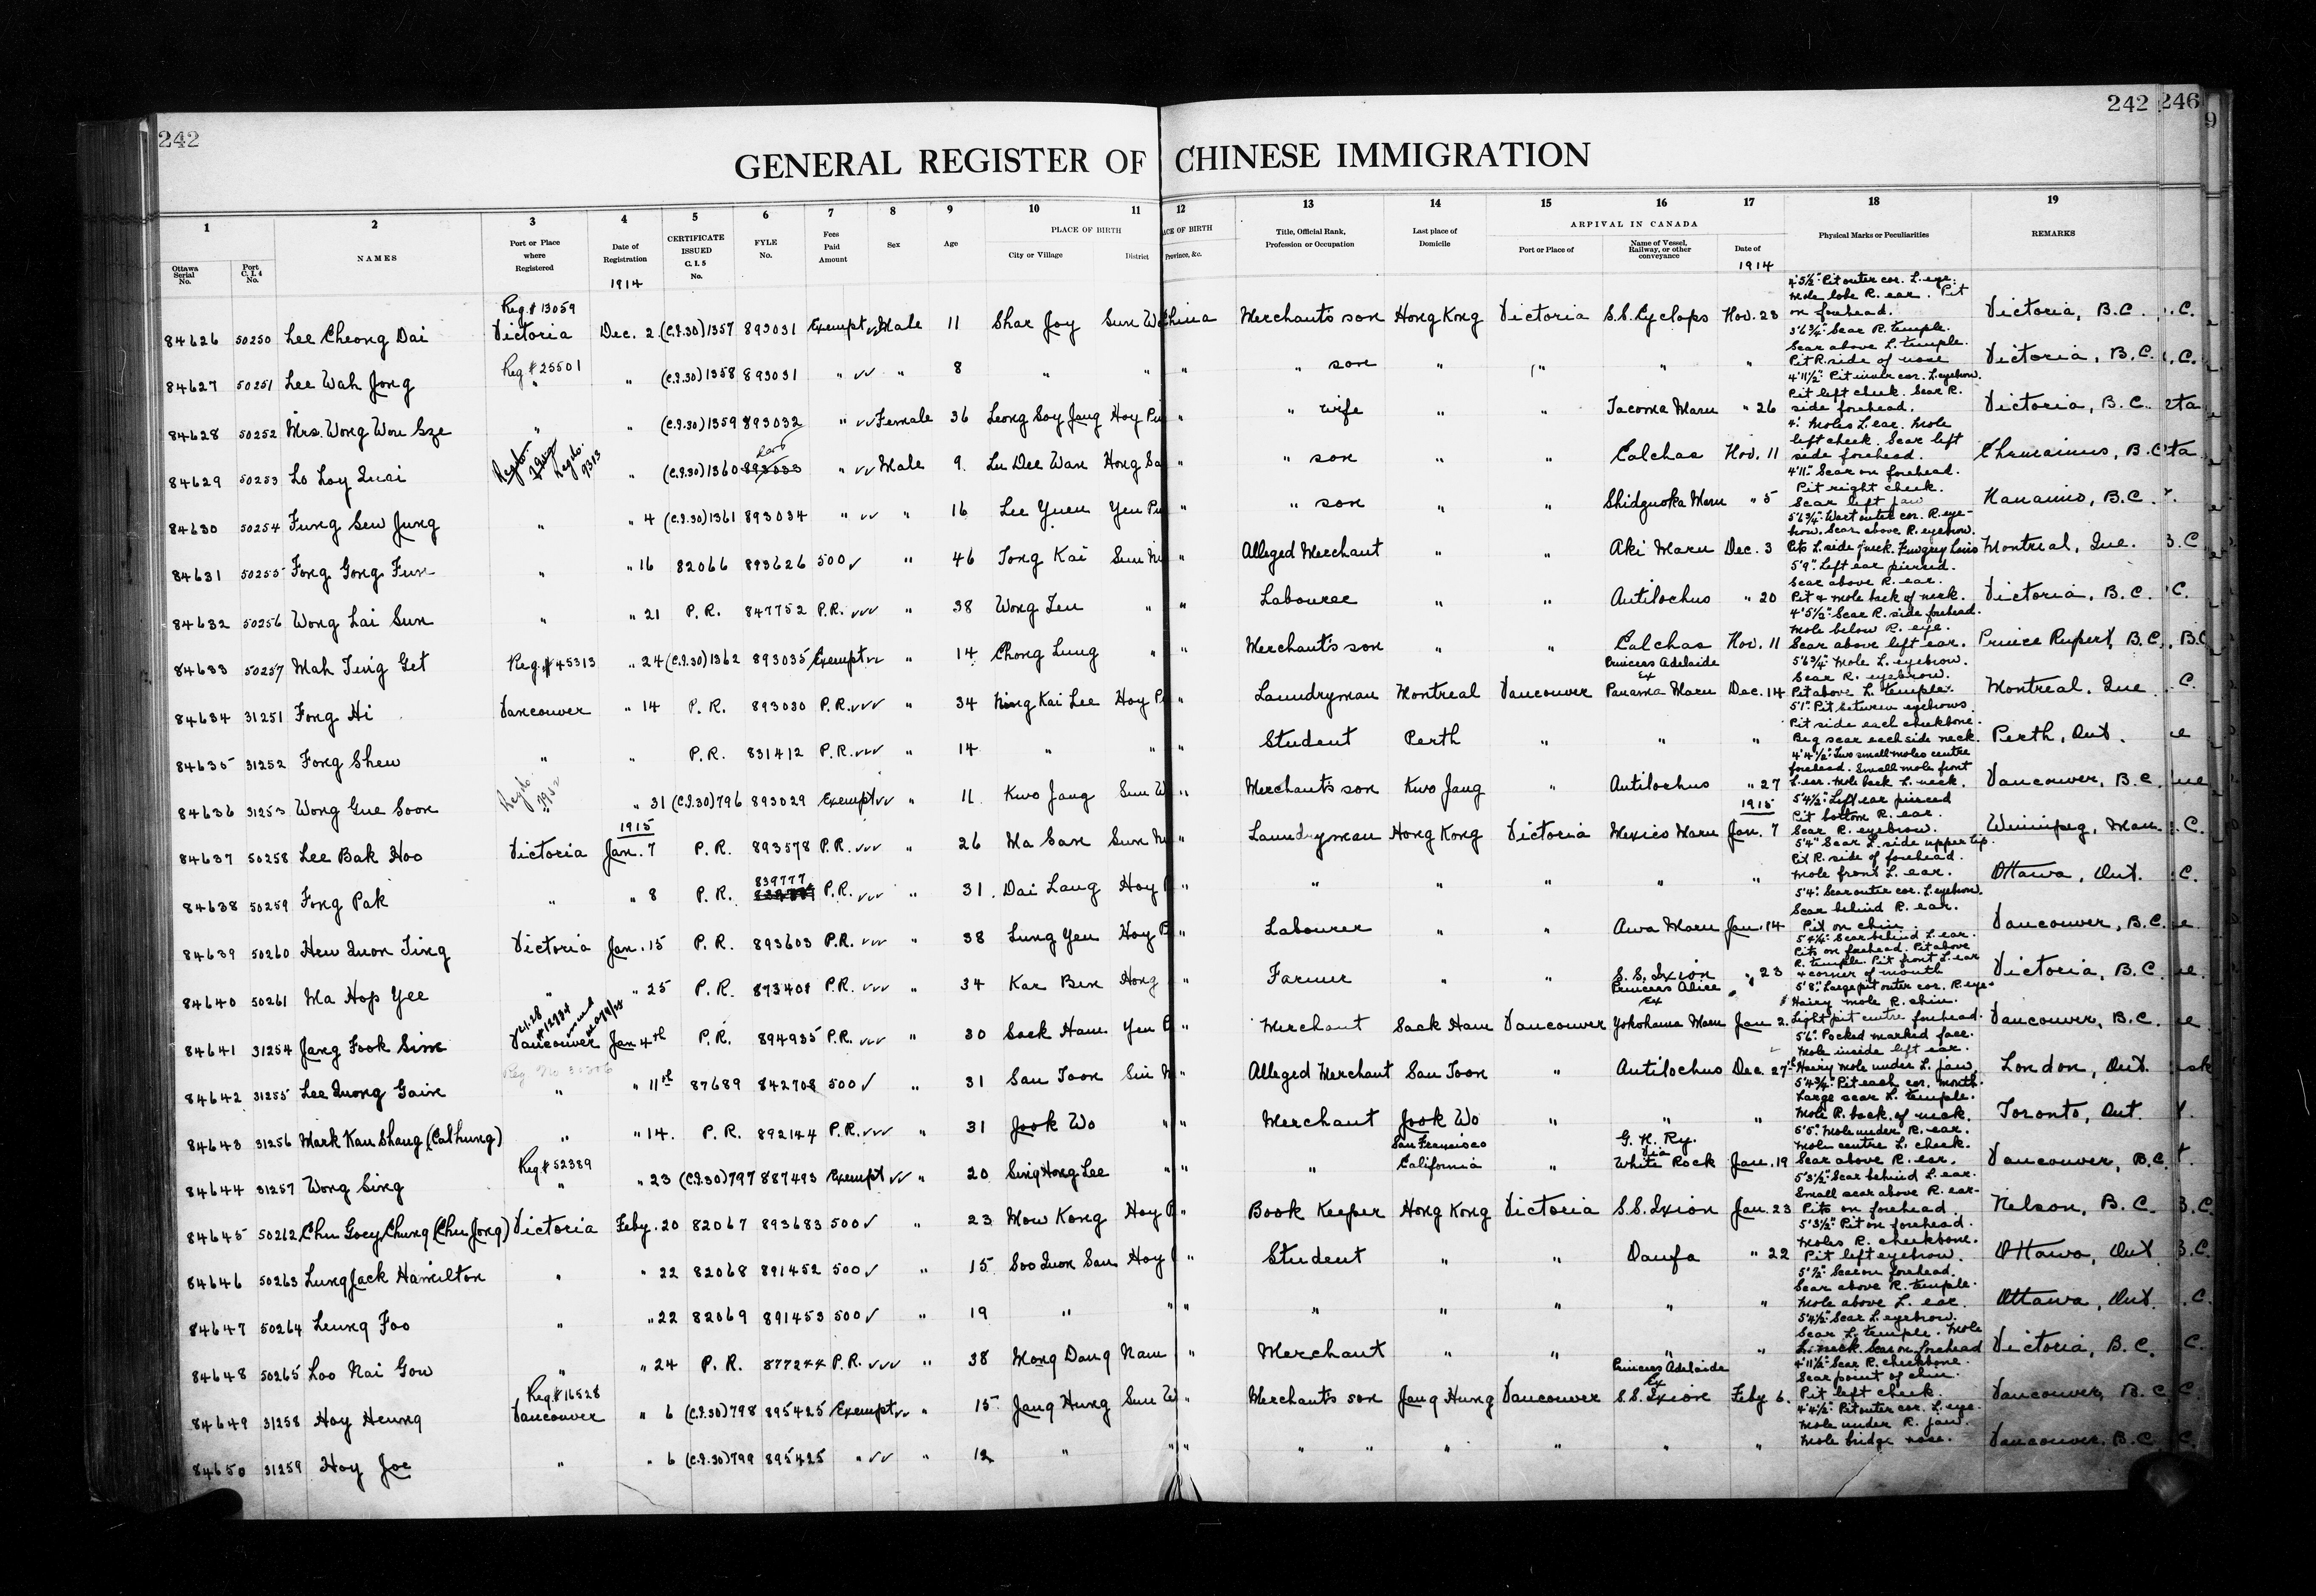 242
242
246
9
GENERAL REGISTER OF CHINESE IMMIGRATION
1 2 3 4 5 6 7 8 9 10 11 12 13 14 15 16 17 18 19
Ottawa Serial No. Port C. I. 4 No. NAMES Port or Place where Registered Date of Registration CERTIFICATE ISSUED C. I. 5 No. FYLE No. Fees Paid Amount Sex Age PLACE OF BIRTH City or Village District Province, &c. Title, Official Rank, Profession or Occupation Last place of Domicile ARRIVAL IN CANADA Port or Place of Name of Vessel, Railway, or other conveyance Date of Physical Marks or Peculiarities REMARKS
1914 1914
84626 50250 Lee Cheong Dai Reg. # 13059 Victoria Dec. 2 (C.I.30) 1357 893031 Exempt Male 11 Shar Joy Sun W China Merchants son Hong Kong Victoria S.S. Cyclops Nov. 23 4'5½" Pit outer cor. L. eye. Mole lobe R. ear. Pit on forehead. Victoria, B.C.
84627 50251 Lee Wah Jong Reg # 25501 " " (C.I.30) 1358 893031 " " 8 " " " " son " " " " 3'6¾" Scar R. temple. Scar above L. temple. Pit R. side of nose Victoria, B.C.
84628 50252 Mrs. Wong Wou Sze " " (C.I.30) 1359 893032 " Female 36 Leong Soy Jang Hoy Pi " " wife " " Tacoma Maru " 26 4'11½" Pit inner cor. L. eyebrow. Pit left cheek. Scar R. side forehead. Victoria, B.C.
84629 50253 Lo Loy Quai " (C.I.30) 1360 893033 " Male 9 Lu Dee Wan Hong Sa " " son " " Calchas Nov. 11 4'. Moles L. ear. Mole left cheek. Scar left side forehead. Chemainus, B.C.
84630 50254 Fung Sew Jung " " 4 (C.I.30) 1361 893034 " " 16 Lee Yuen Yen Pi " " son " " Shidzuoka Maru " 5 4'11" Scar on forehead. Pit right cheek. Scar left jaw Nanaimo, B.C.
84631 50255 Fong Gong Fun " " 16 82066 893626 500 " 46 Tong Kai Sun Ni " Alleged Merchant " " Aki Maru Dec. 3 5'6¾" Wart outer cor. R. eyebrow. Scar above R. eyebrow. Pits L. side neck. Montreal, Que.
84632 50256 Wong Lai Sun " " 21 P.R. 847752 P.R. " 38 Wong Leu " " Labourer " " Antilochus " 20 5'9" Left ear pierced. Scar above R. ear. Pit & mole back of neck. Victoria, B.C.
84633 50257 Mah Ting Get Reg. # 45313 " 24 (C.I.30) 1362 893035 Exempt " 14 Chong Lung " " Merchants son " " Calchas Nov. 11 4'5½" Scar R. side forehead. Mole below R. eye. Scar above left ear. Prince Rupert, B.C.
84634 31251 Fong Hi Vancouver " 14 P.R. 893030 P.R. " 34 Ning Kai Lee Hoy P " Laundryman Montreal Vancouver Princess Adelaide Ex Panama Maru Dec. 14 5'6¾" Mole L. eyebrow. Scar R. eyebrow. Pit above L. temple. Montreal, Que
84635 31252 Fong Shew " " P.R. 831412 P.R. " 14 " " " Student Perth " " " 5'1" Pit between eyebrows. Pit side each cheekbone. Big scar each side neck. Perth, Ont.
84636 31253 Wong Gue Soon " 31 (C.I.30) 796 893029 Exempt " 11 Kwo Jang Sun W " Merchants son Kwo Jang " Antilochus " 27 4'4½" Two small moles centre forehead. Small mole front L. ear. Mole back L. neck. Vancouver, B.C.
1915 1915
84637 50258 Lee Bak Hoo Victoria Jan. 7 P.R. 893578 P.R. " 26 Ma San Sun N " Laundryman Hong Kong Victoria Mexico Maru Jan. 7 5'4½" Left ear pierced Pit bottom R. ear. Scar R. eyebrow. Winnipeg, Man.
84638 50259 Fong Pak " " 8 P.R. 839777 P.R. " 31 Dai Lang Hoy P " " " " " " 5'4" Scar L. side upper lip. Pit R. side of forehead. Mole front L. ear. Ottawa, Ont.
84639 50260 Hew Quon Ting Victoria Jan. 15 P.R. 893603 P.R. " 38 Lung Yen Hoy P " Labourer " " Awa Maru Jan. 14 5'4" Scar outer cor. L. eyebrow. Scar behind R. ear. Pit on chin. Vancouver, B.C.
84640 50261 Ma Hop Yee " " 25 P.R. 873401 P.R. " 34 Kar Ben Hong " Farmer " " S.S. Ixion " 23 5'4¼" Scar behind L. ear. Pits on forehead. Pit above R. temple. Pit front L. ear & corner of mouth Victoria, B.C.
84641 31254 Jang Fook Sim Vancouver Jan 4th P.R. 894935 P.R. " 30 Sack Ham Yen P " Merchant Sack Ham Vancouver Princess Alice Ex Yokohama Maru Jan 2. 5'8" Large pit outer cor. R. eye. Hairy mole R. chin. Light pit centre forehead. Vancouver, B.C.
84642 31255 Lee Quong Gain " " 11th 87689 842708 500 " 31 San Toon Sin N " Alleged Merchant San Toon " Antilochus Dec 27th 5'6" Pocked marked face. Mole inside left ear. Hairy mole under L. jaw. London, Ont.
84643 31256 Mark Kau Shang (Cathung) " " 14. P.R. 892144 P.R. " 31 Jook Wo " " Merchant Jook Wo " " " 5'4¾" Pit each cor. mouth. Large scar L. temple. Mole R. back of neck. Toronto, Ont.
84644 31257 Wong Sing Reg # 52389 " " 23 (C.I.30) 797 887493 Exempt " 20 Sing Hong Lee " " " San Francisco California " G. N. Ry. via White Rock Jan. 19 5'5" Mole under R. ear. Mole centre L. cheek. Scar above R. ear. Vancouver, B.C.
84645 50262 Chu Goey Chung (Chu Jong) Victoria Feby. 20 82067 893683 500 " 23 Mow Kong Hoy P " Book Keeper Hong Kong Victoria S.S. Ixion Jan. 23 5'3½" Scar behind L. ear. Small scar above R. ear. Pits on forehead. Nelson, B.C.
84646 50263 Lung Jack Hamilton " " 22 82068 891452 500 " 15 Soo Quon San Hoy " Student " " Daufa " 22 5'3½" Pit on forehead. Moles R. cheekbone. Pit left eyebrow. Ottawa, Ont
84647 50264 Leung Foo " " 22 82069 891453 500 " 19 " " " " " " " " Scar on forehead. Scar above R. temple. Mole above L. ear. Ottawa, Ont.
84648 50265 Loo Nai Gow " " 24 P.R. 877244 P.R. " 38 Mong Dang Nam " Merchant " " " " 5'4½" Scar L. eyebrow. Scar L. temple. Mole L. neck. Scar on forehead Victoria, B.C.
84649 31258 Hoy Heung Reg # 16528 Vancouver " 6 (C.I.30) 798 895425 Exempt " 15 Jang Hung Sun W " Merchants son Jang Hung Vancouver Princess Adelaide Ex S.S. Ixion Feby 6. 4'11½" Scar R. cheekbone. Scar point of chin. Pit left cheek. Vancouver, B.C.
84650 31259 Hoy Joe " " 6 (C.I.30) 799 895425 " " 12 " " " " " " " " " 4'4½" Pit outer cor. L. eye. Mole under R. jaw. Mole bridge nose. Vancouver, B.C.